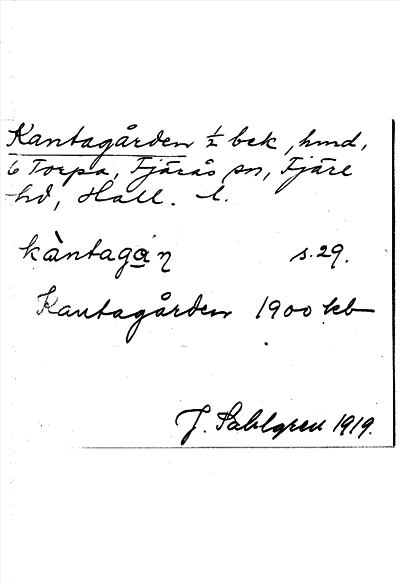 Kantagården ½ bek, hmd,
6 Torpa, Fjärås sn, Fjäre
hd, Hall. l.
kàntagɑ̀ɳ s. 29.
Kantagården 1900 kb
J. Sahlgren 1919.